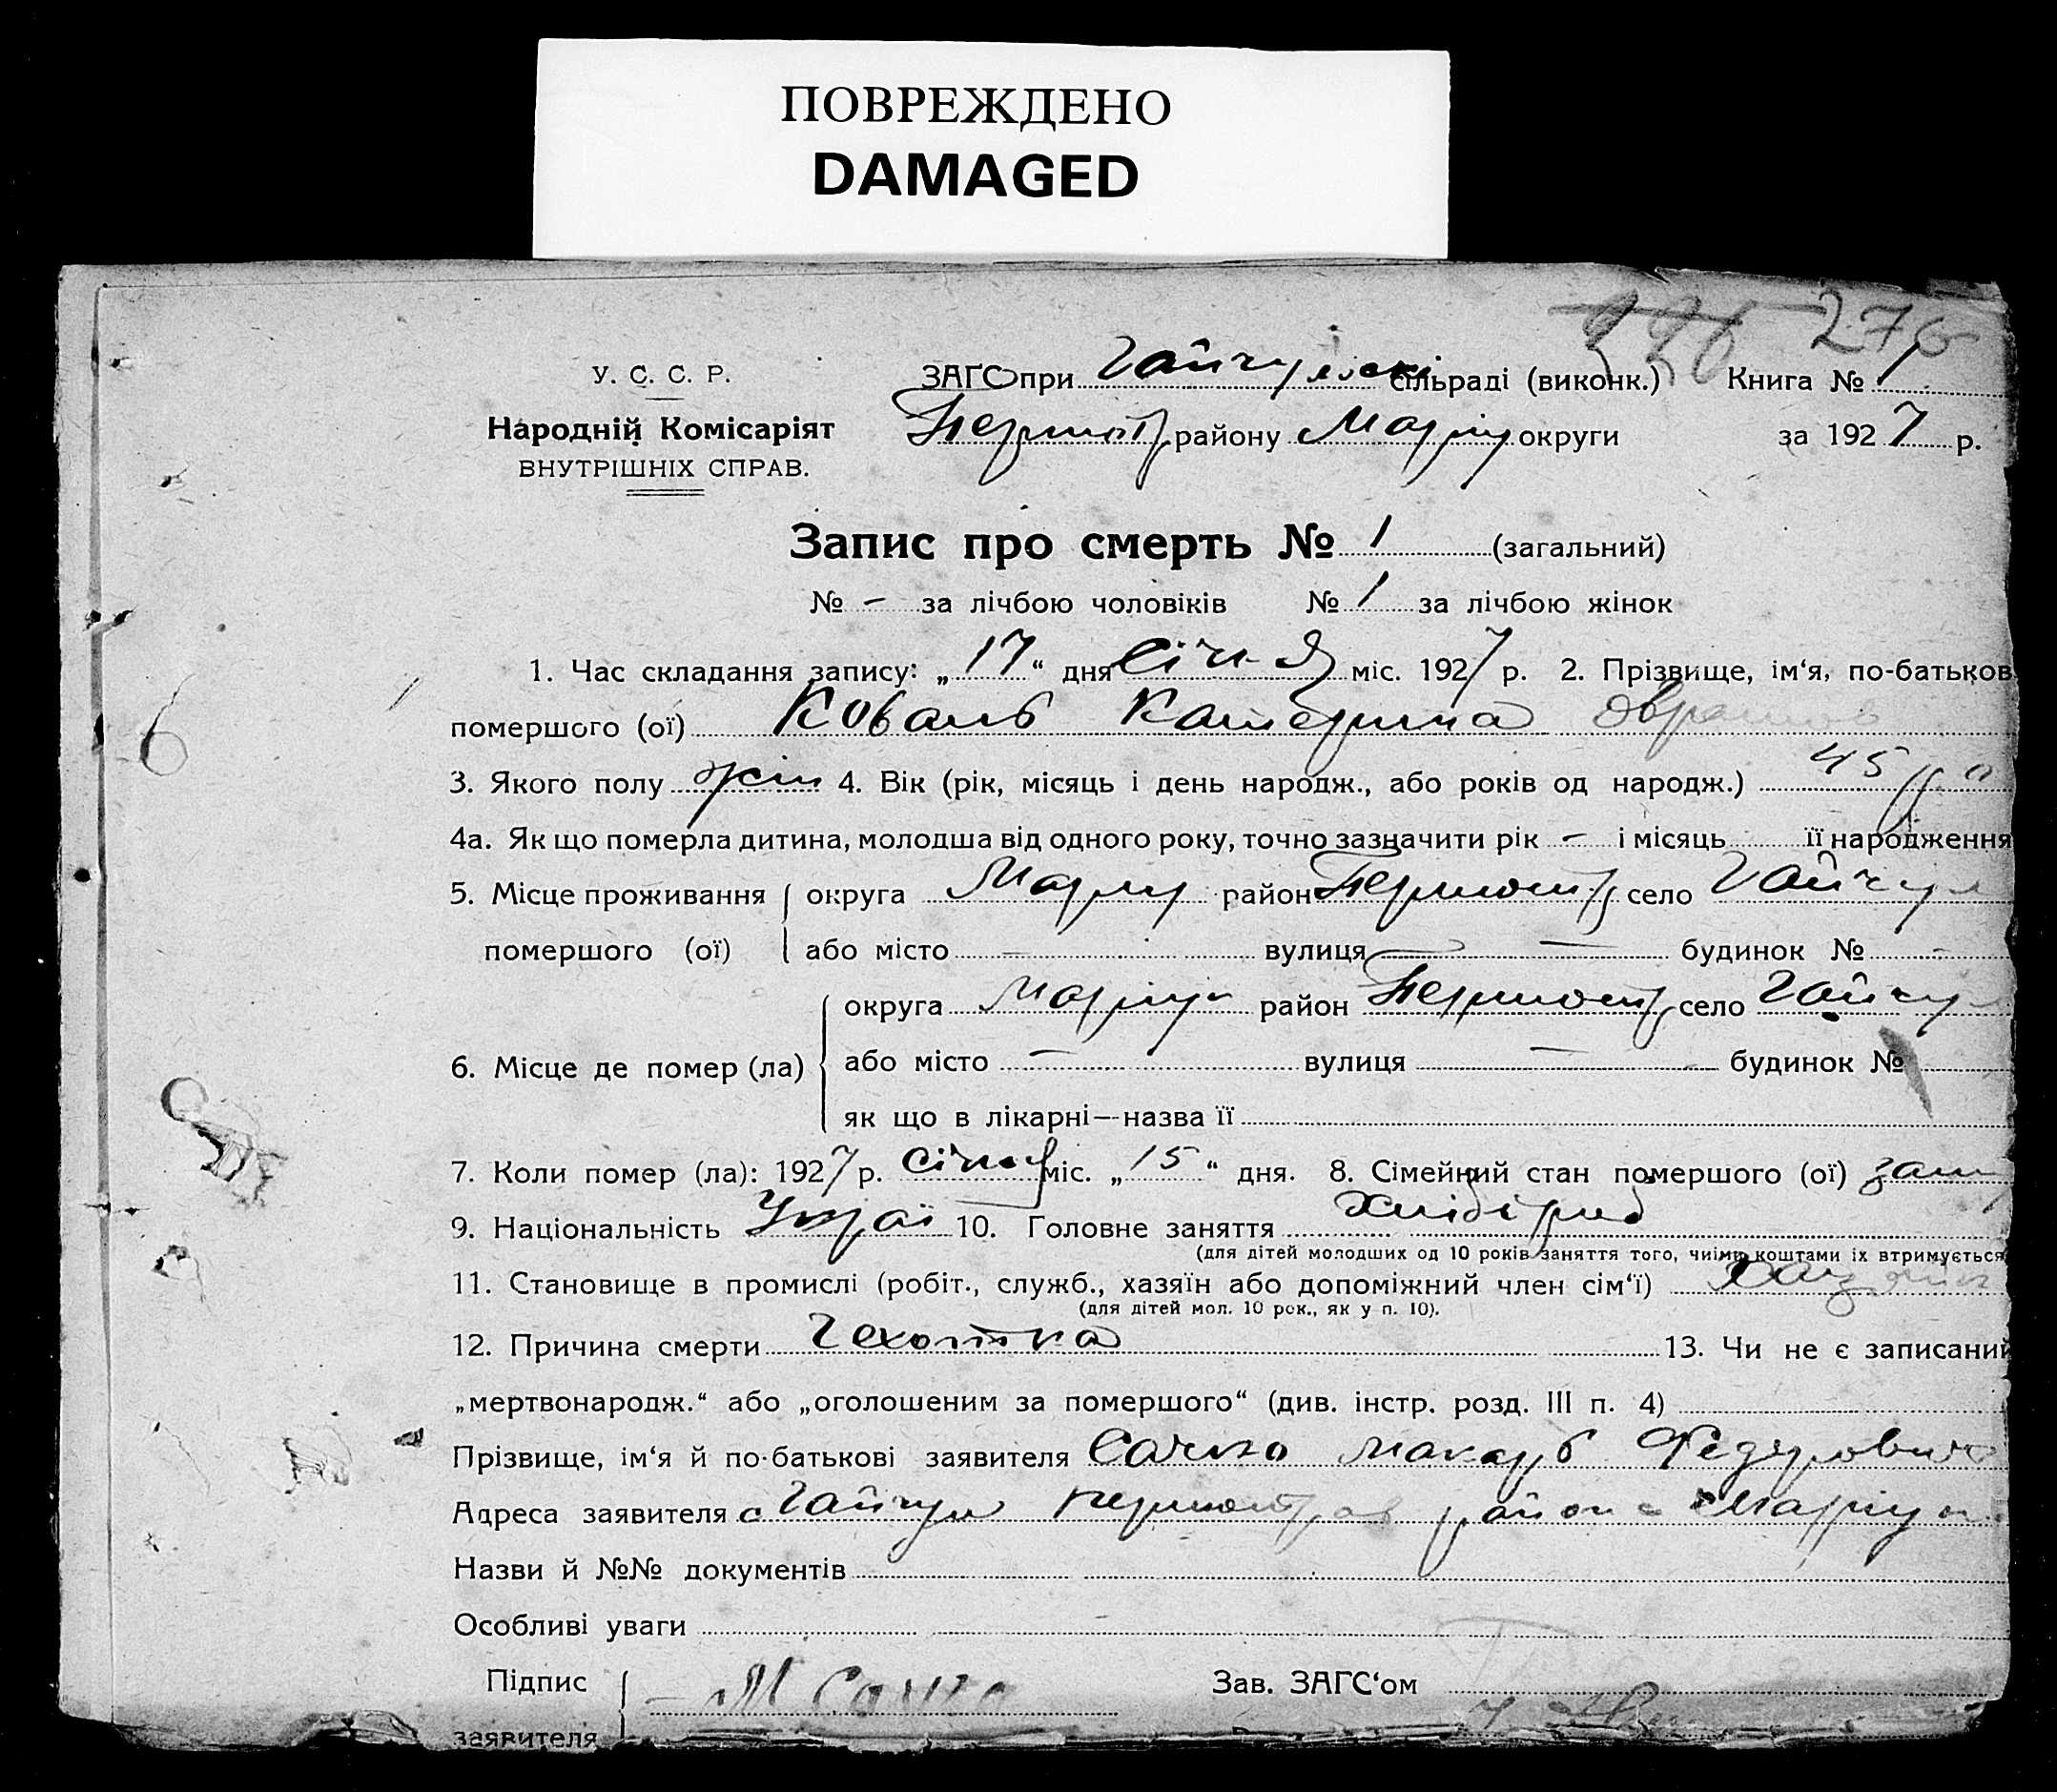 ПОВРЕЖДЕНО
DAMAGED
276
У. С. С. Р.
Народній Комісаріят
ВНУТРІШНІХ СПРАВ.
ЗАГС при Гайчульскі сільраді (виконк.) Книга № 1
Першотр району Маріу округи за 1927 р.
Запис про смерть № 1 (загальний)
№ – за лічбою чоловіків № 1 за лічбою жінок
1. Час складання запису: „17“ дня Січня міс. 1927 р. 2. Прізвище, ім‘я, по-батьков
помершого (ої) Коваль Катерина
3. Якого полу жін 4. Вік (рік, місяць і день народж., або років од народж.) 45
4а. Як що померла дитина, молодша від одного року, точно зазначити рік – і місяць її народження
5. Місце проживання округа Маріу район Першотр село Гайчул
помершого (ої) або місто — вулиця — будинок № -
округа Маріуп район Першотр село Гайчул
6. Місце де помер (ла) або місто — вулиця — будинок №
як що в лікарні—назва її
7. Коли помер (ла): 1927 р. січня міс. „15“ дня. 8. Сімейний стан помершого (ої) зам
9. Національність Украї 10. Головне заняття Хліборид
(для дітей молодших од 10 років заняття того, чиїми коштами їх втримується
11. Становище в промислі (робіт., служб., хазяїн або допоміжний член сім‘ї)
(для дітей мол. 10 рок., як у п. 10).
12. Причина смерти Чехотка 13. Чи не є записаний
„мертвонародж.“ або „оголошеним за помершого“ (див. інстр. розд. III п. 4)
Прізвище, ім‘я й по-батькові заявителя Сачко Макарь Федурович
Адреса заявителя с Гайчул Першотров района Маріуп
Назви й №№ документів
Особливі уваги
Підпис М Сачко Зав. ЗАГС‘ом
заявителя
6